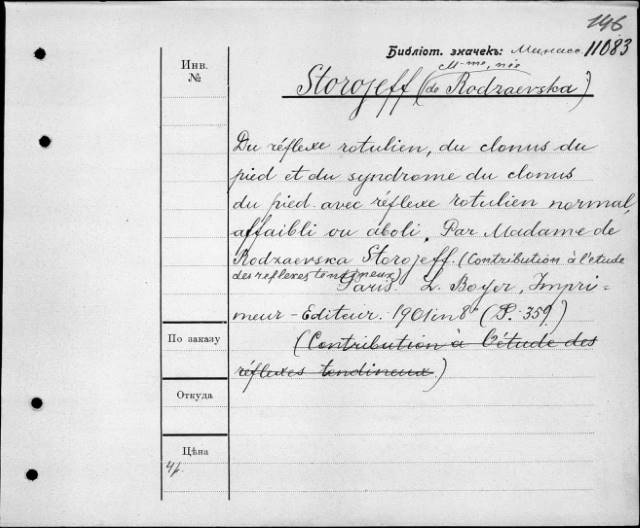 146
Библіот. значекъ: Манасс 11083
Инв.
№
M-me, née
Storojeff (de Rodzaevska)
Du réflexe rotulien, du clonus du
pied et du syndrome du clonus
du pied avec réflexe rotulien normal,
affaibli ou aboli. Par Madame de
Rodzaevska Storojeff. (Contribution à l'etude
des reflexes tendineux)
Paris. L. Boyer, Impri-
meur-Editeur. 1901 in 8° (P. 359)
По заказу
(Contribution à l'étude des
réflexes tendineux)
Откуда
Цѣна
4р.